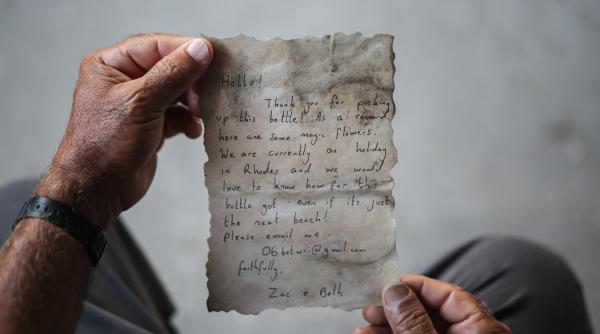 Hello!
Thank you for picking
up this bottle! As a reward,
here are some magic flowers.
We are currently on holiday
in Rhodes and we would
love to know how far this
bottle got even if its just
the next beach!
Please email me:-
06betwri@gmail.com
faithfully.
Zac + Beth